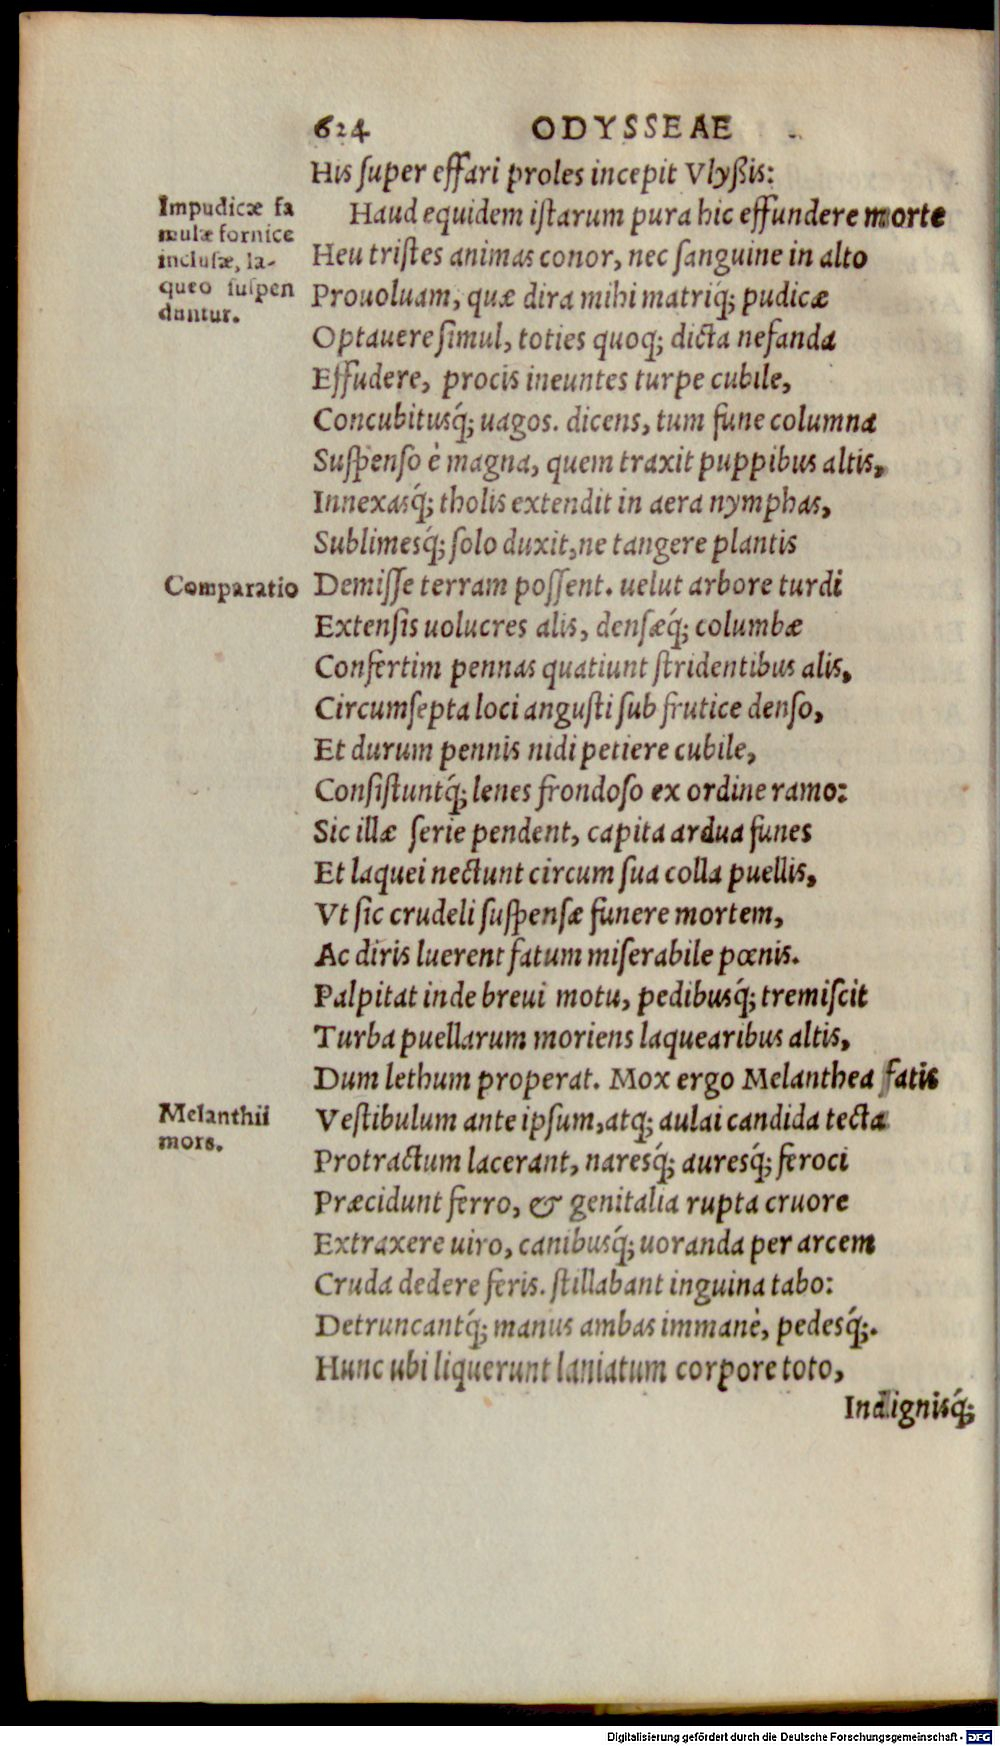 624 ODYSSEAE
His ſuper effari proles incepit Vlyßis:
Impudicæ fa
mulæ fornice
incluſæ, la-
queo ſuſpen
duntur.
Haud equidem iſtarum pura hic effundere morte
Heu triſtes animas conor, nec ſanguine in alto
Prouoluam, quæ dira mihi matriq́; pudicæ
Optauere ſimul, toties quoq; dicta nefanda
Effudere, procis ineuntes turpe cubile,
Concubitusq́; uagos. dicens, tum fune columna
Suſpenſo è magna, quem traxit puppibus altis,
Innexasq́; tholis extendit in aera nymphas,
Sublimesq́; ſolo duxit, ne tangere plantis
Comparatio
Demiſſe terram poſſent. uelut arbore turdi
Extenſis uolucres alis, denſæq́; columbæ
Confertim pennas quatiunt ſtridentibus alis,
Circumſepta loci anguſti ſub frutice denſo,
Et durum pennis nidi petiere cubile,
Conſiſtuntq́; lenes frondoſo ex ordine ramo:
Sic illæ ſerie pendent, capita ardua funes
Et laquei nectunt circum ſua colla puellis,
Vt ſic crudeli ſuſpenſæ funere mortem,
Ac diris luerent fatum miſerabile pœnis.
Palpitat inde breui motu, pedibusq́; tremiſcit
Turba puellarum moriens laquearibus altis,
Dum lethum properat. Mox ergo Melanthea fatis
Melanthii
mors.
Veſtibulum ante ipſum, atq; aulai candida tecta
Protractum lacerant, naresq́; auresq́; feroci
Præcidunt ferro, & genitalia rupta cruore
Extraxere uiro, canibusq́; uoranda per arcem
Cruda dedere feris. ſtillabant inguina tabo:
Detruncantq́; manus ambas immanè, pedesq́;.
Hunc ubi liquerunt laniatum corpore toto,
Indignisq́;
Digitalisierung gefördert durch die Deutsche Forschungsgemeinschaft - DFG